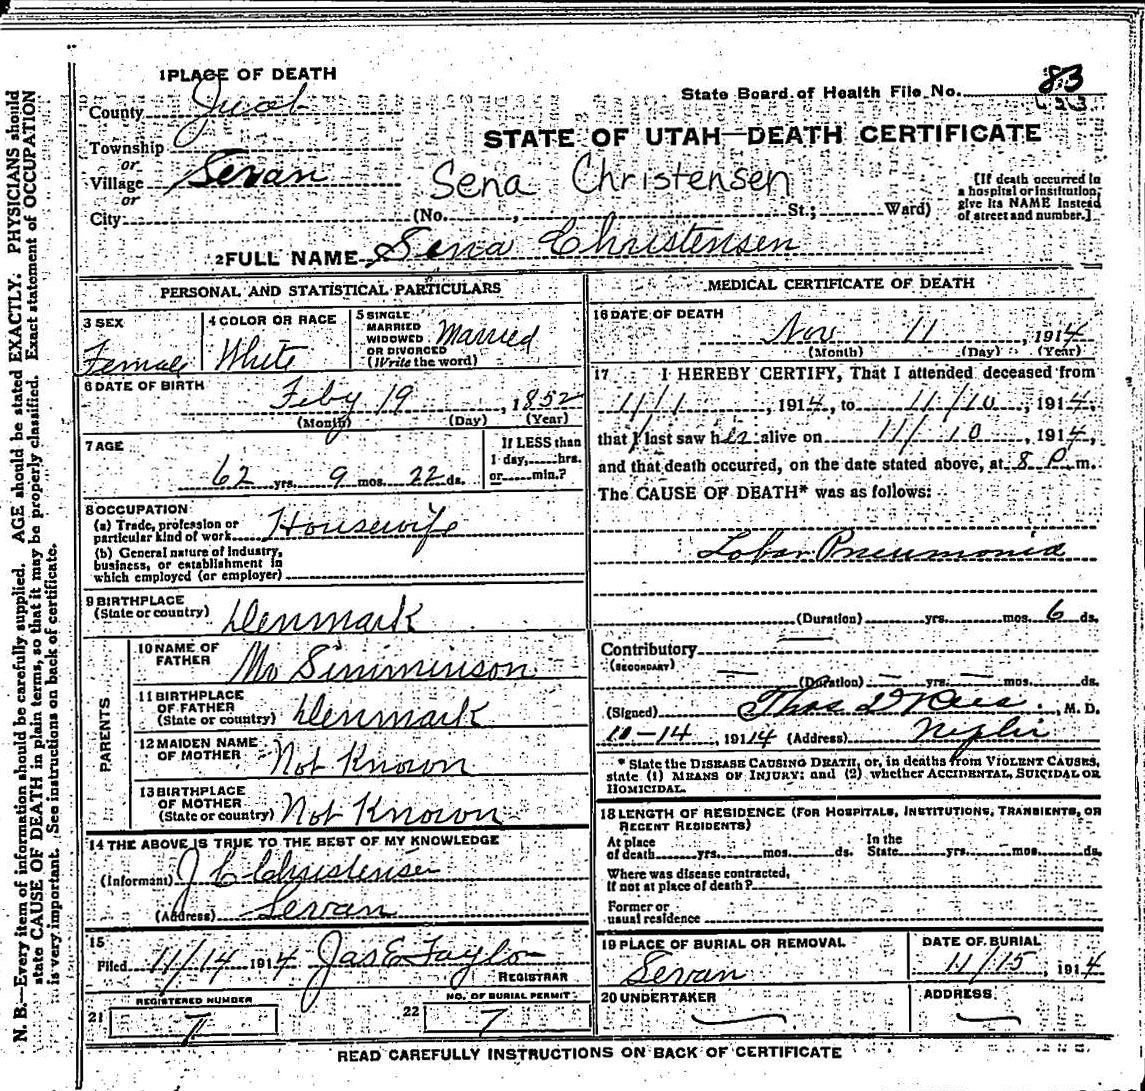 1 PLACE OF DEATH
County Juab
State Board of Health File No. 83
Township
or
Village Levan
or
STATE OF UTAH—DEATH CERTIFICATE
Sena Christensen
[If death occurred in
a hospital or institution,
give its NAME instead
of street and number.]
City (No. , St.; Ward)
2 FULL NAME Sena Christensen
PERSONAL AND STATISTICAL PARTICULARS
3 SEX
Female
4 COLOR OR RACE
White
5 SINGLE
MARRIED
WIDOWED
OR DIVORCED
(Write the word)
Married
6 DATE OF BIRTH
Feby 19, 1852
(Month) (Day) (Year)
7 AGE
62 yrs. 9 mos. 22 ds.
If LESS than
1 day, hrs.
or min.?
8 OCCUPATION
(a) Trade, profession or
particular kind of work Housewife
(b) General nature of industry,
business, or establishment in
which employed (or employer)
9 BIRTHPLACE
(State or country) Denmark
PARENTS
10 NAME OF
FATHER
11 BIRTHPLACE
OF FATHER
(State or country) Denmark
12 MAIDEN NAME
OF MOTHER Not Known
13 BIRTHPLACE
OF MOTHER
(State or country) Not Known
14 THE ABOVE IS TRUE TO THE BEST OF MY KNOWLEDGE
(Informant) J C Christensen
(Address) Levan
15
Filed 11/14 1914 Jas E Taylor
REGISTRAR
REGISTERED NUMBER
21 7
NO. OF BURIAL PERMIT
22 7
MEDICAL CERTIFICATE OF DEATH
16 DATE OF DEATH
Nov 11 1914
(Month) (Day) (Year)
17 I HEREBY CERTIFY, That I attended deceased from
11/1, 1914, to 11/10, 1914,
that I last saw her alive on 11/10, 1914,
and that death occurred, on the date stated above, at 8 P m.
The CAUSE OF DEATH* was as follows:
Lobar Pneumonia
(Duration) yrs. mos. 6 ds.
Contributory
(SECONDARY)
(Duration) yrs. mos. ds.
(Signed) Thos D Rees, M. D.
-14, 1914 (Address) Nephi
* State the DISEASE CAUSING DEATH, or, in deaths from VIOLENT CAUSES,
state (1) MEANS OF INJURY; and (2) whether ACCIDENTAL, SUICIDAL OR
HOMICIDAL.
18 LENGTH OF RESIDENCE (FOR HOSPITALS, INSTITUTIONS, TRANSIENTS, OR
RECENT RESIDENTS)
At place
of death yrs. mos. ds.
In the
State yrs. mos. ds.
Where was disease contracted,
if not at place of death?
Former or
usual residence
19 PLACE OF BURIAL OR REMOVAL
Levan
DATE OF BURIAL
11/15, 1914
20 UNDERTAKER
ADDRESS
READ CAREFULLY INSTRUCTIONS ON BACK OF CERTIFICATE
N. B.—Every item of information should be carefully supplied. AGE should be stated EXACTLY. PHYSICIANS should
state CAUSE OF DEATH in plain terms, so that it may be properly classified. Exact statement of OCCUPATION
is very important. See instructions on back of certificate.